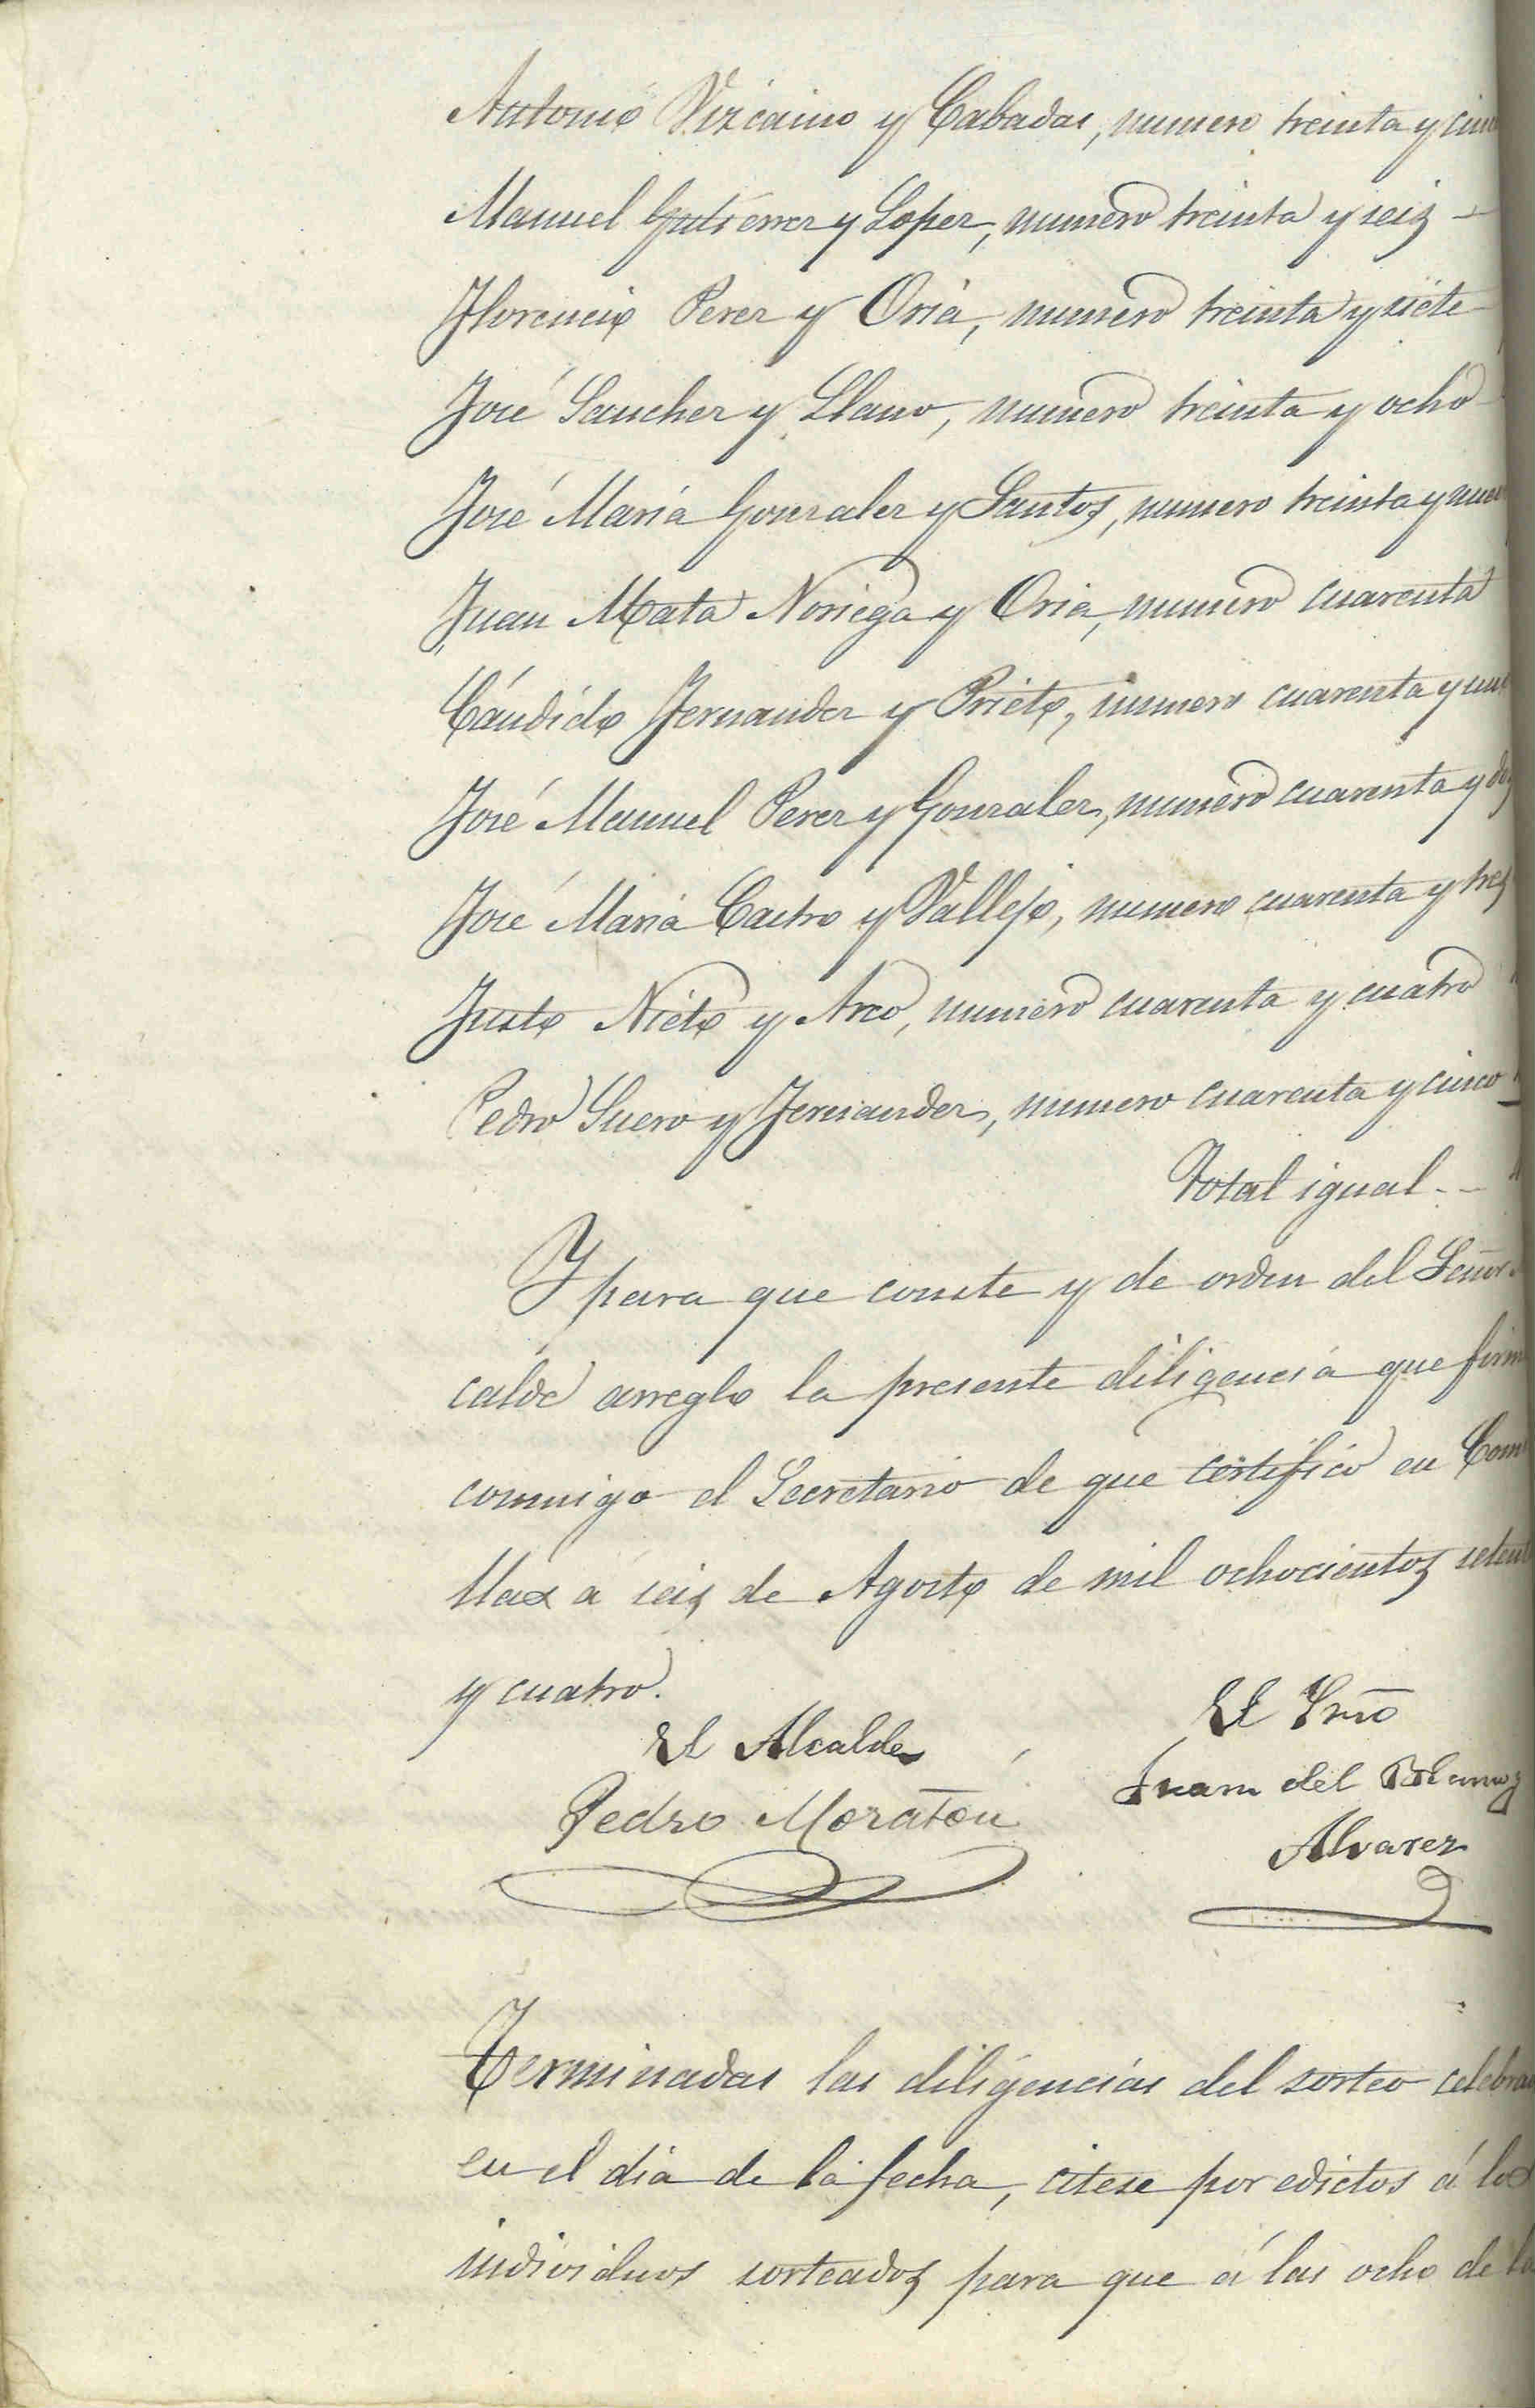 Antonio Vizcaino y Cabadas, numero treinta y cin
Manuel Gutierrez y Lopez, numero treinta y seis -
Florencio Perez y Oria, numero treinta y siete -
José Sanchez y Llano, numero treinta y ocho -
José María Gonzalez y Santos, numero treinta y nue
Juan Mata Noriega y Oria, numero cuarenta
Cándido Fernandez y Prieto, numero cuarenta y un
José Manuel Perez y Gonzalez, numero cuarenta y dos
José María Castro y Vallejo, numero cuarenta y tres
Justo Nieto y Arco, numero cuarenta y cuatro
Pedro Suero y Fernandez, numero cuarenta y cinco
Total igual - -
Y para que conste y de orden del Señor
calde arreglo la presente diligencia que firm
conmigo el Secretario de que certifico en Com
llas á seis de Agosto de mil ochocientos setent
y cuatro.
El Alcalde
Pedro Moratón
El Srio
Juan del Blanco
Alvarez
Terminadas las diligencias del sorteo celebra
en el dia de la fecha, citese por edictos á los
individuos sorteados para que á las ocho de la